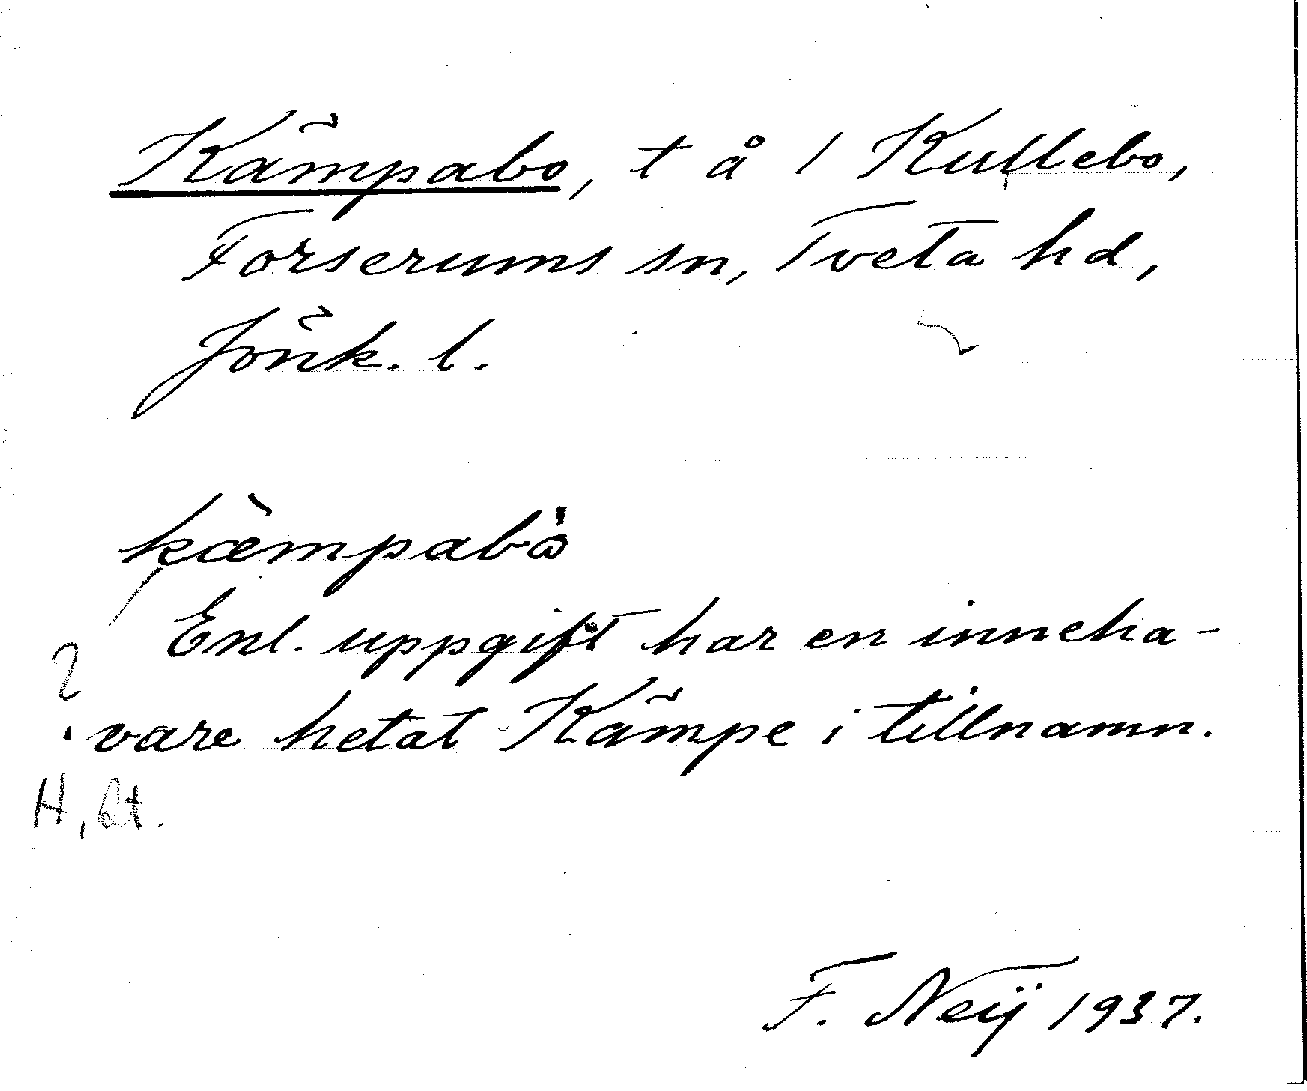 Kämpabo, t å 1 Kullebo,
Forserums sn, Tveta hd,
Jönk. l.
kæ̀mpabo
Enl. uppgift har en inneha-
vare hetat Kämpe i tillnamn.
?
H,
F. Neij 1937.